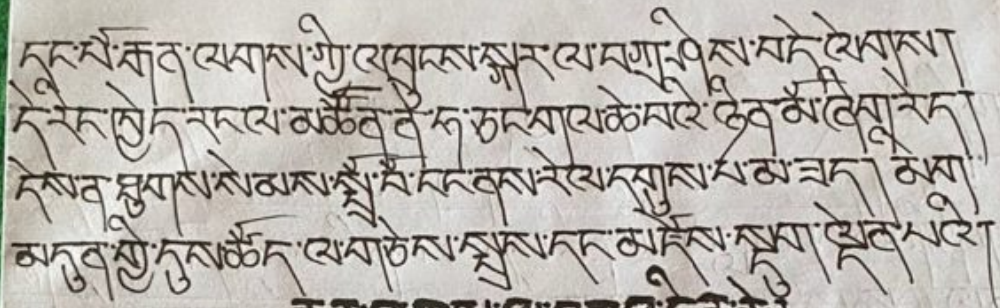 དང་པོ་རྒན་ལགས་ཀྱི་འཁྲུངས་སྐར་ལ་བཀྲ་ཤིས་བདེ་ལེགས།
དེ་རིང་ཁྱེད་རང་ལ་མཚོན་ན་ཧ་ཅང་གལ་ཆེ་བའི་ཉིན་མོ་ཞིག་རེད།
དེས་ན་ཐུགས་སེམས་སྤྲོ་པོ་དང་ངས་རེལ་དགུས་པ་མ་ཟད། མིག་
མདུན་གྱི་དུས་ཚོད་ལ་གཅེས་སྤྲས་དང་མཛེས་སྡུག་ལྡན་པའི